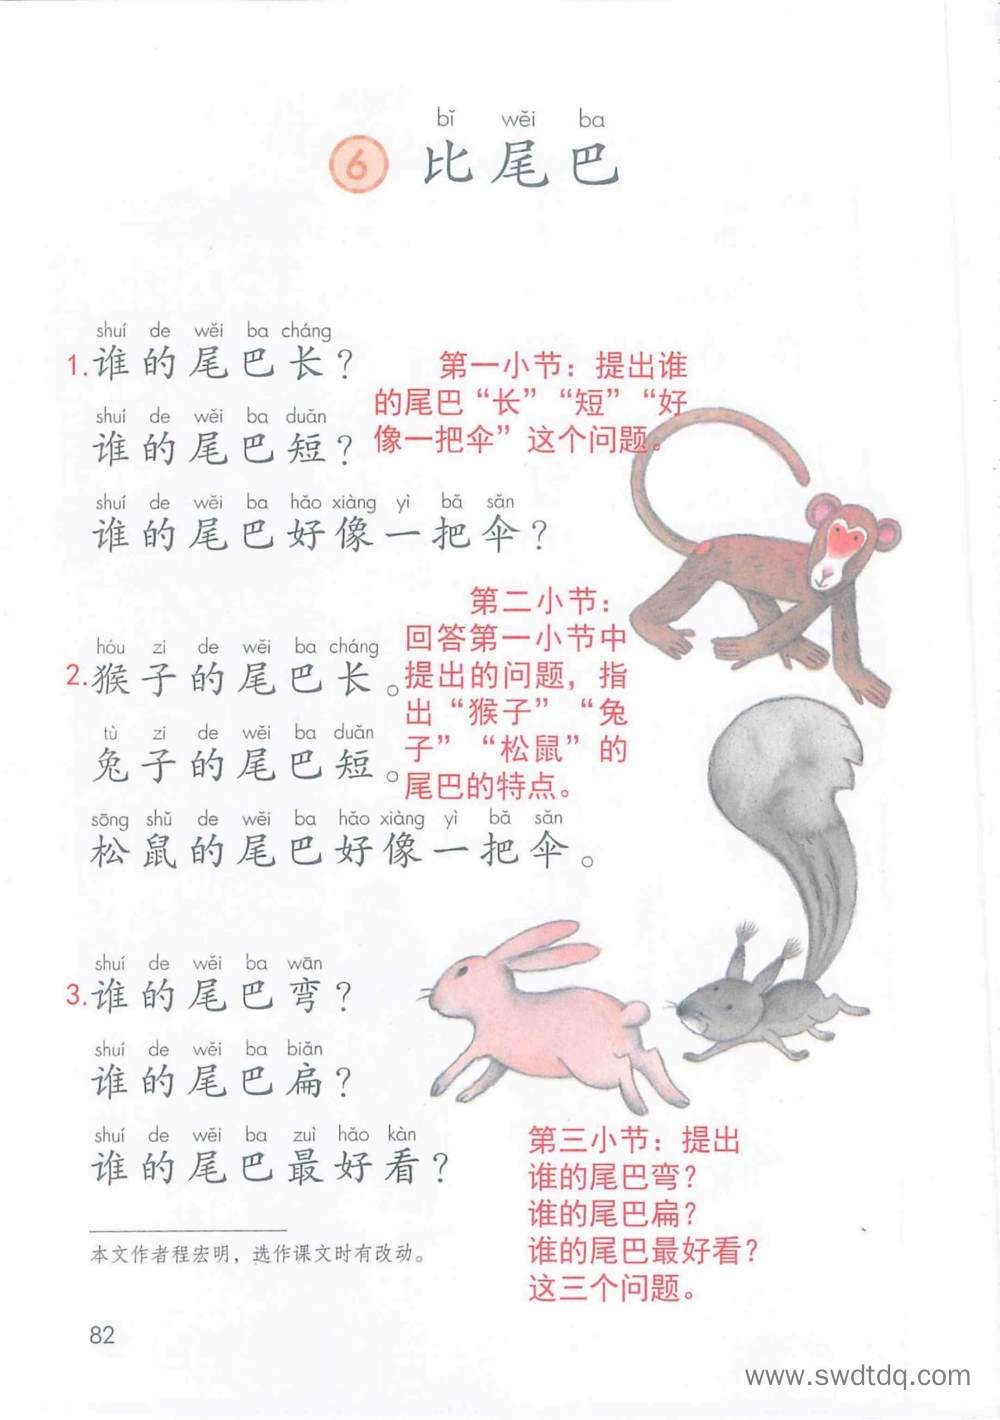 bǐ wěi ba
6 比尾巴
shuí de wěi ba cháng
1.谁的尾巴长？
shuí de wěi ba duǎn
谁的尾巴短？
shuí de wěi ba hǎo xiàng yì bǎ sǎn
谁的尾巴好像一把伞？
第一小节：提出谁
的尾巴“长”“短”“好
像一把伞”这个问题。
hóu zi de wěi ba cháng
2.猴子的尾巴长。
tù zi de wěi ba duǎn
兔子的尾巴短。
sōng shǔ de wěi ba hǎo xiàng yì bǎ sǎn
松鼠的尾巴好像一把伞。
第二小节：
回答第一小节中
提出的问题，指
出“猴子”“兔
子”“松鼠”的
尾巴的特点。
shuí de wěi ba wān
3.谁的尾巴弯？
shuí de wěi ba biǎn
谁的尾巴扁？
shuí de wěi ba zuì hǎo kàn
谁的尾巴最好看？
第三小节：提出
谁的尾巴弯？
谁的尾巴扁？
谁的尾巴最好看？
这三个问题。
本文作者程宏明，选作课文时有改动。
82
www.swdtdq.com